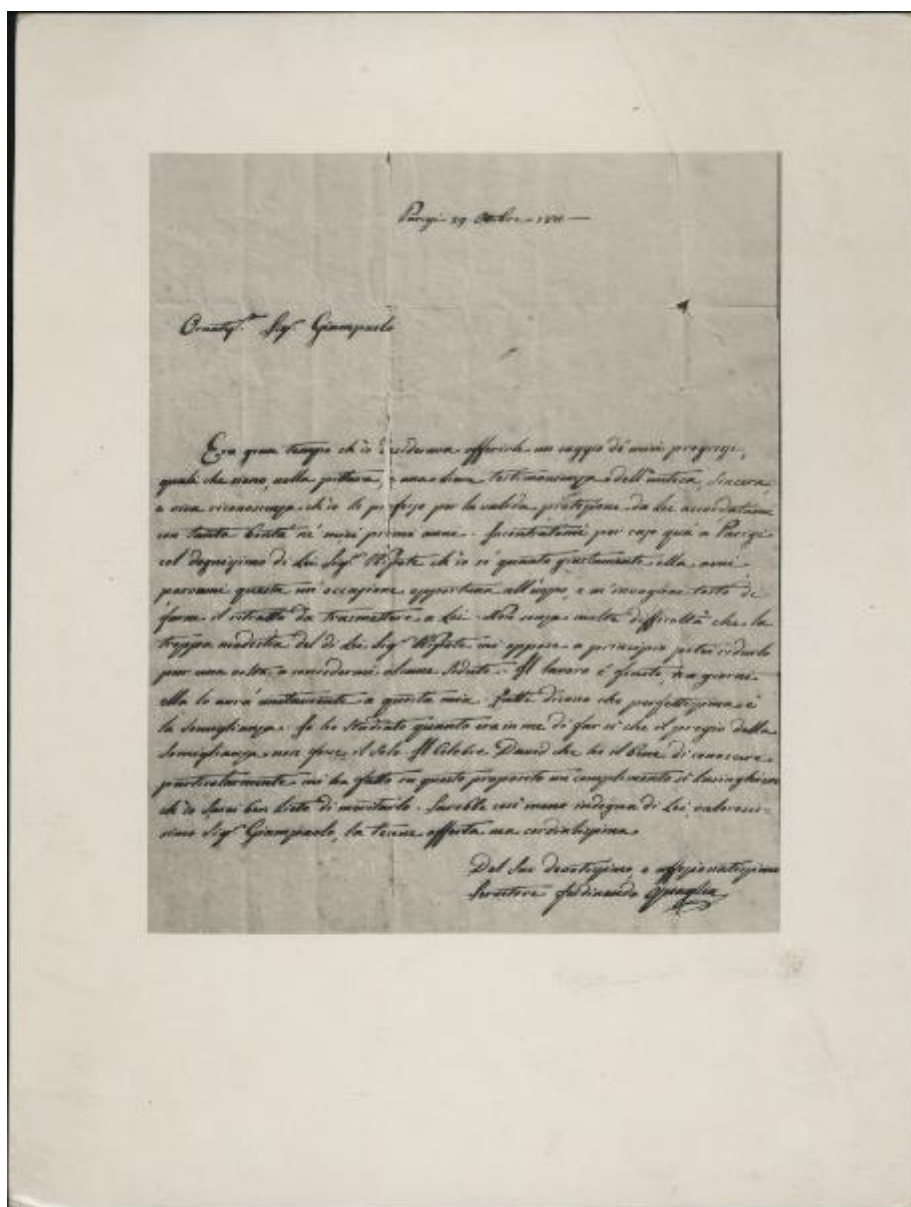 Parigi 29 Ottobre
Sig.r Giampaolo
Era gran tempo ch'io desiderava offerirle un saggio de' miei progressi,
quali che sieno, nella pittura, e una testimonianza dell'antica, sincera,
e viva riconoscenza ch'io le professo per la valida protezione da Lei accordatami
con tanta bontà ne' miei primi anni. Incontratomi per caso quà a Parigi
col degnissimo di Lei Sig.r Nipote ch'io sò quanto giustamente ella ami
parvemi questa un'occasione opportuna all'uopo, e m'invogliai tosto di
farne il ritratto da trasmettere a Lei. Non senza molta difficoltà che la
troppa modestia del di Lei Sig.r Nipote mi oppose a principio potei ridurlo
per una volta a concedermi alcune sedute. Il lavoro è finito, e a giorni
ella lo avrà unitamente a questa mia. Tutti dicono che perfettissima è
la somiglianza. Io ho studiato quanto era in me di far sì che il pregio della
somiglianza non fosse il solo. Il celebre David che ho il bene di conoscere
particolarmente mi ha fatto su questo proposito un complimento sì lusinghiero
ch'io sarei ben lieto di meritarlo. Sarebbe così meno indegna di Lei, valorosis-
simo Sig.r Giampaolo, la tenue offerta ma cordialissima
Del Suo devotissimo, e affezionatissimo
Servitore Ferdinando Quaglia